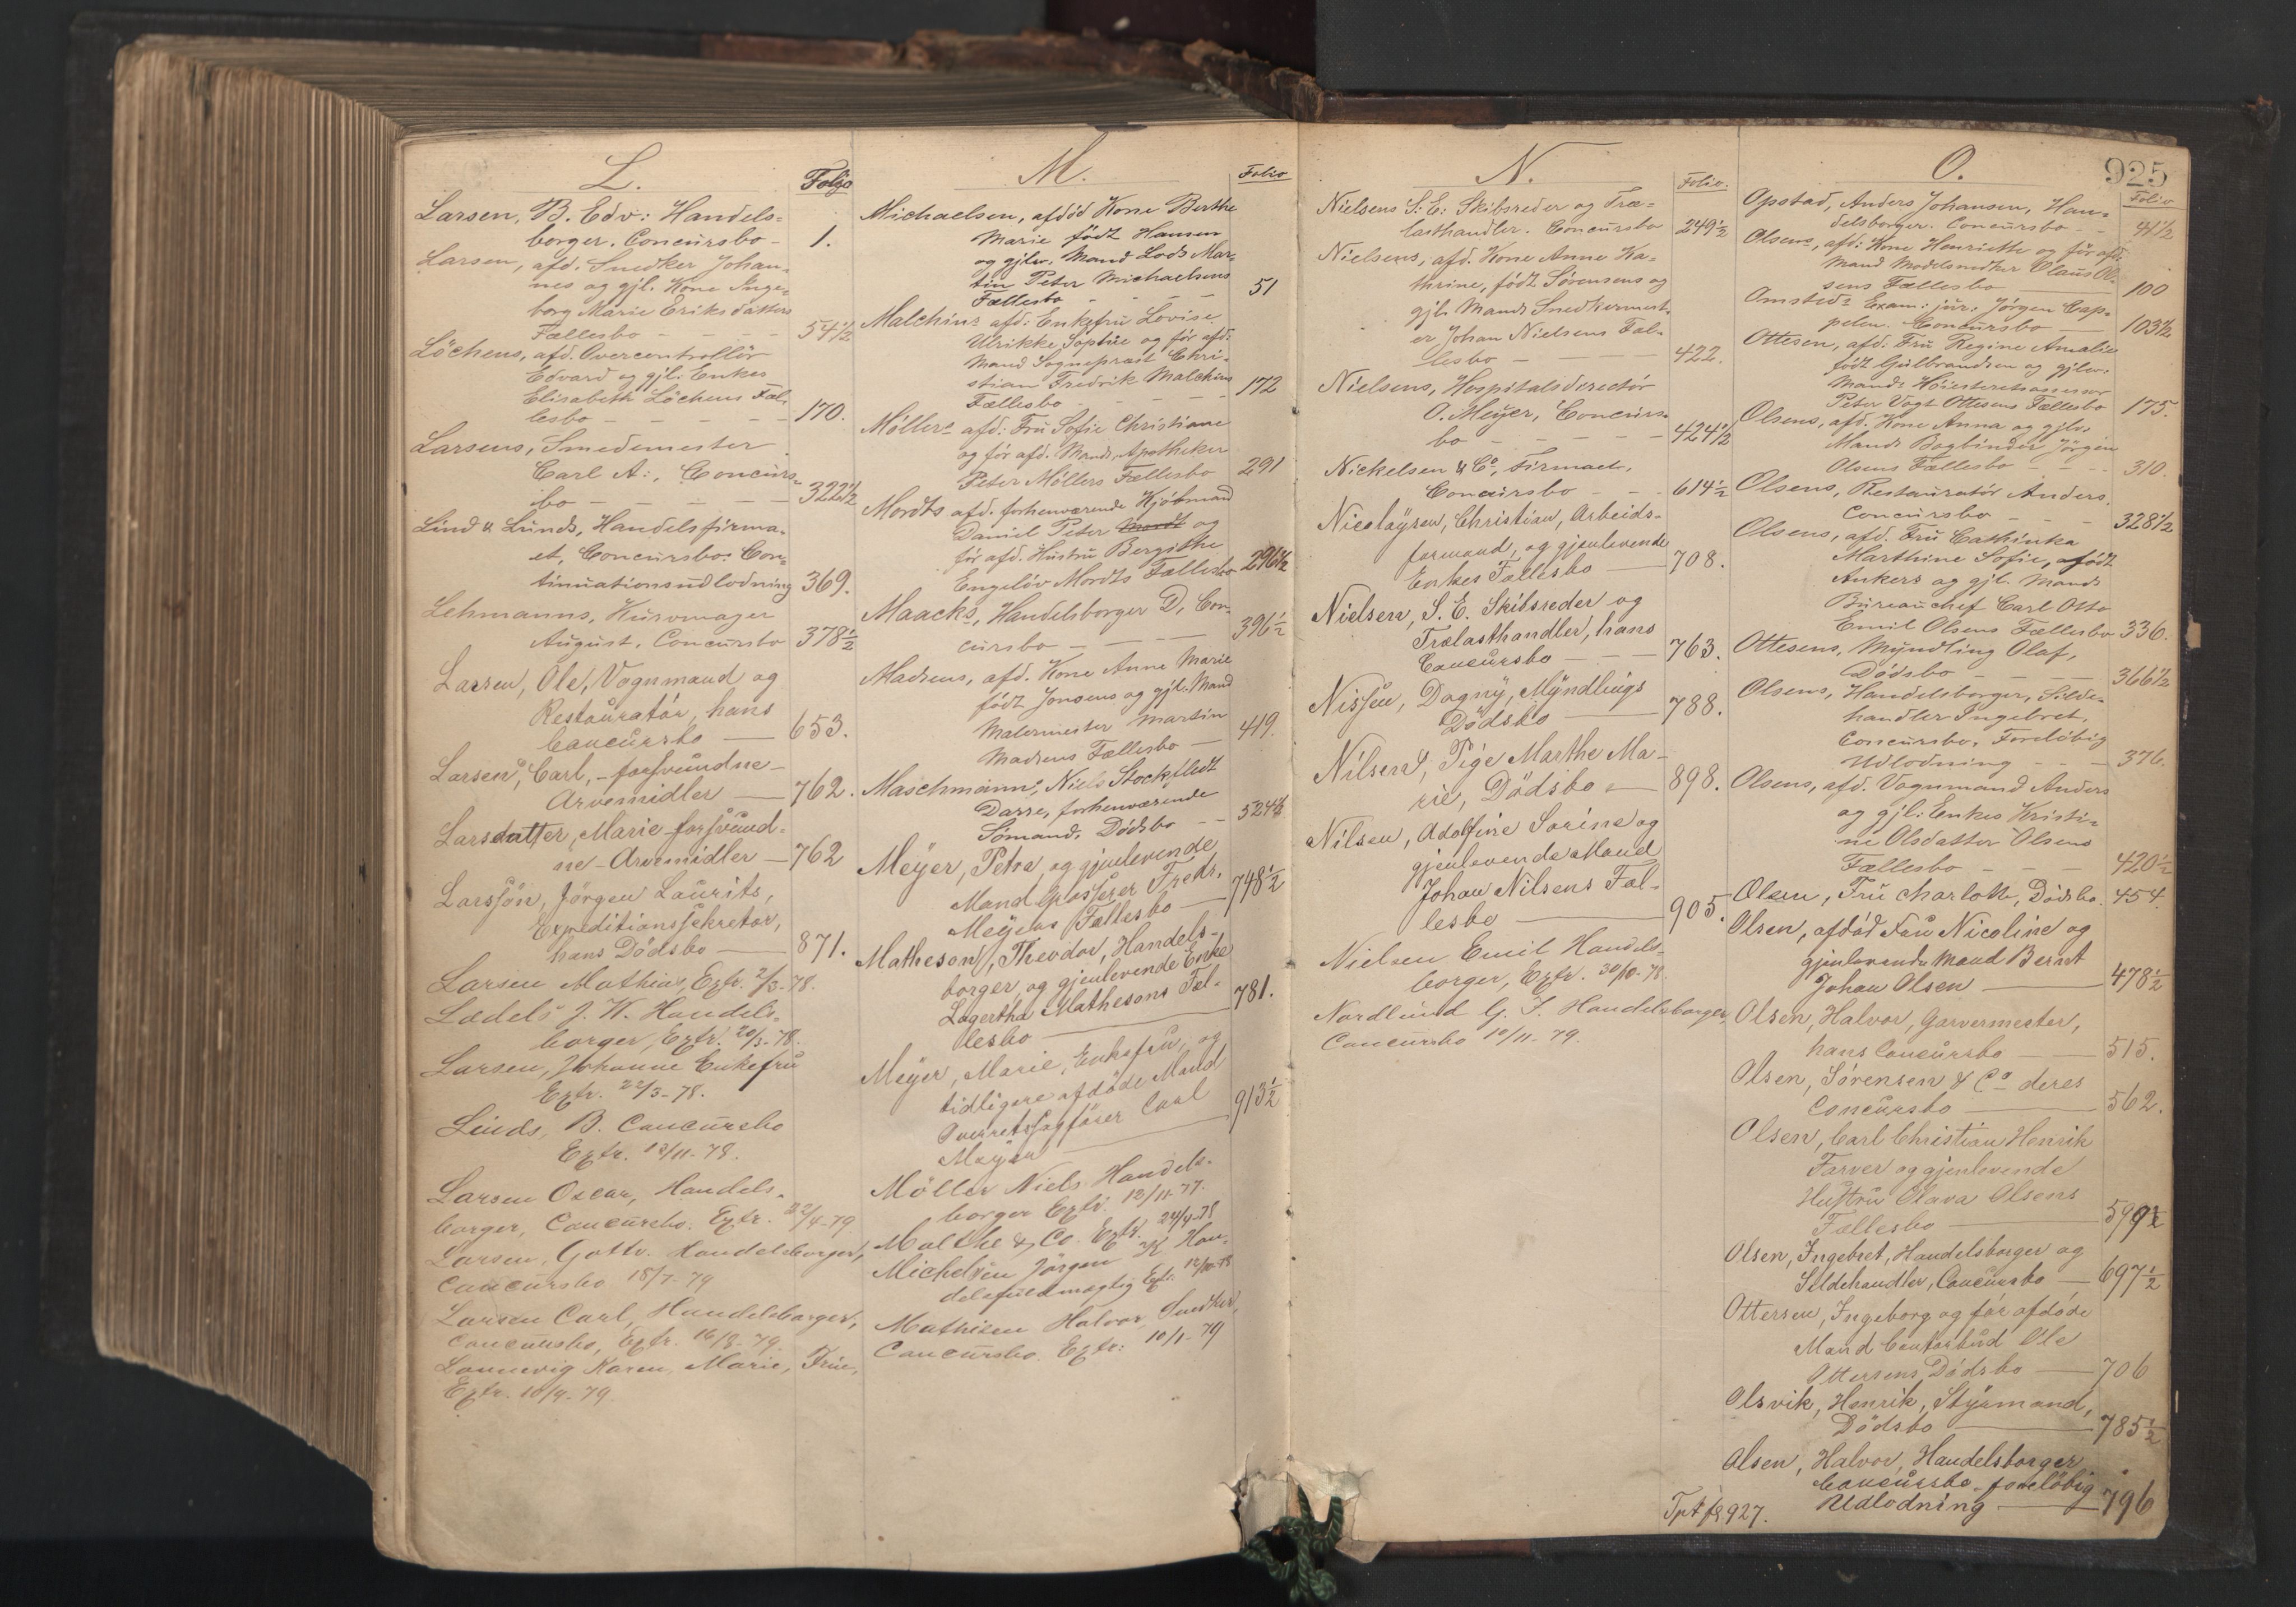 L.
Folio
Larsen, B. Edv: Handels=
borger. Concursbo - 1.
Larsen, afd. Snedker Johan-
nes og gjl. Kone Inge-
borg Marie Eriksdatters
Fællesbo - - - - 54 1/2
Löchens, afd. Overcontrollör
Edvard og gjl. Enkes
Elisabeth Löchens Fæl-
lesbo - - - - 170.
Larsens, Smedemester
Carl A:, Concurs-
bo - - - - 322 1/2
Lind & Lunds, Handelsfirma-
et, Concursbo. Con-
tinuationsudlodning 369.
Lehmanns, Kurvmager
August, Concursbo 378 1/2
Larsen, Ole, Vognmand og
Restauratør, hans
Concursbo — 653.
Larsen, Carl, - forsvundne -
Arvemidler — 762.
Larsdatter, Marie forsvund-
ne - Arvemidler — 762
Larssön, Jörgen Laurits,
Expeditionssekretær,
hans Dödsbo — 871.
Larsen Mathias, Extr. 2/3-78.
Lædels J. W. Handels-
borger, Extr. 20/3-78.
Larsen, Johanne Enkefru
Extr. 22/3-78.
Linds, B. Concursbo
Extr. 12/11-78.
Larsen Oscar, Handels-
borger, Concursbo. Extr. 22/4-79
Larsen, Gottr. Handelsborger,
Concursbo 18/7-79
Larsen Carl, Handelsborger,
Concursbo, Extr. 16/8-79.
Lonnevig Karen, Marie, Frue,
Extr. 10/9-79
M.
Folio
Michaelsen, afdöd Kone Berthe
Marie födt Hansen
og gjlv. Mand Lods Mar-
tin Peter Michaelsens
Fællesbo - - - 51
Malchins afd: Enkefru Lovise
Ulrikke Sophie og för afd:
Mand Sogneprest Chri-
stian Fredrik Malchins
Fællesbo - - - 172
Möllers afd: Fru Sofie Christiane
og för afd. Mands, Apotheker
Peter Möllers Fællesbo 291
Mordts afd. forhenværende Kjöbmand
Daniel Peter Mordt og
för afd. Hustru Bergithe
Engelöv Mordts Fællesbo 296 1/2
Maacks, Handelsborger D, Con-
cursbo - - - 396 1/2
Madsens, afd. Kone Anne Marie
födt Jensens og gjl. Mand
Malermester Martin
Madsens Fællesbo — 419.
Maschmanns, Niels Stockfledt
Darre, forhenværende
Sömands Dödsbo - - 524 1/2
Meyer, Petra, og gjenlevende
Mand Grosserer Fredr.
Meyers Fællesbo — 748 1/2
Matheson, Theodor, Handels-
borger og gjenlevende Enke
Lagertha Mathesons Fæl-
lesbo — 781.
Meyer, Marie, Enkefru, og
tidligere afdöde Mand
Overretssagförer Carl
Meyer — 913 1/2
Möller Niels Handels-
borger Extr. 12/11-77.
Malthe & Co. Extr. 24/4-78
Michelsen Jörgen K Han-
delsfuldmægtig Extr. 12/10-78
Mathisen Halvor, Snedker,
Concursbo. Extr: 10/1-79
N.
Folio.
Nielsens S: E: Skibsreder og Træ-
lasthandler. Concursbo 249 1/2
Nielsens, afd. Kone Anne Ka-
thrine, födt Sörensens og
gjl. Mands Snedkermest-
er Johan Nielsens Fæl-
lesbo - - - 422.
Nielsens, Hospitalsdirectör
O. Meyer, Concurs-
bo - - - - - 424 1/2
Nickelsen & Co, Firmaet,
Concursbo - - - 614 1/2
Nicolaysen, Christian, Arbeids-
formand, og gjenlevende
Enkes Fællesbo — 708.
Nielsen, S. E. Skibsreder og
Trælasthandler, hans
Concursbo - - - 763.
Nissen, Dagny, Myndlings
Dödsbo — 788.
Nilsen, Pige Marthe Ma-
rie, Dödsbo — 898.
Nilsen, Adolfine Sorine og
gjenlevende Mand
Johan Nilsens Fæl-
lesbo — 905.
Nielsen Emil Handels-
borger, Extr. 30/10-78.
Nordlund G. F. Handelsborger,
Concursbo 10/11-79.
925
O.
Folio
Opstad, Anders Johansen, Han-
delsborger. Concursbo - - 41 1/2
Olsens, afd: Kone Henriette og för afd:
Mand Modelsnedker Claus Ol-
sens Fællesbo — 100
Omsteds Exam: jur: Jörgen Cap-
pelen. Concursbo — 103 1/2
Ottesen, afd. Fru Regine Amalie
födt Gulbrandsen og gjlv.
Mands Höiesteretsassessor
Peter Vogt Ottesens Fællesbo 175.
Olsens, afd. Kone Anna og gjlv.
Mands Bogbinder Jörgen
Olsens Fællesbo - - - 310.
Olsens, Restauratör Anders,
Concursbo - - - 328 1/2
Olsens, afd. Fru Cathinka
Marthine Sofie, födt
Ankers og gjl. Mands
Bureauchef Carl Otto
Emil Olsens Fællesbo 336.
Ottesens, Myndling Olaf,
Dödsbo - - - - 366 1/2
Olsens, Handelsborger, Silde-
handler Ingebret,
Concursbo, Foreløbig
Udlodning - - - 376.
Olsens, afd. Vognmand Anders
og gjl: Enkes Kristi-
ne Olsdatter Olsens
Fællesbo - - - 420 1/2
Olsen, Fru Charlotte, Dödsbo. 454.
Olsen, afdöd Fru Nicoline og
gjenlevende Mand Bernt
Johan Olsen — 478 1/2
Olsen, Halvor, Garvermester,
hans Concursbo — 515.
Olsen, Sörensen & Co deres
Concursbo — 562.
Olsen, Carl Christian Henrik
Farver og gjenlevende
Hustru Olava Olsens
Fællesbo — 599 1/2
Olsen, Ingebret, Handelsborger og
Sildehandler, Concursbo — 697 1/2
Ottersen, Ingeborg og för afdöde
Mand Contorbud Ole
Ottersens Dödsbo — 706
Olsvik, Henrik, Styrmand,
Dödsbo — 785 1/2
Olsen, Halvor, Handelsborger
Concursbo, foreløbig
Udlodning — 796
Tpt fol 927.